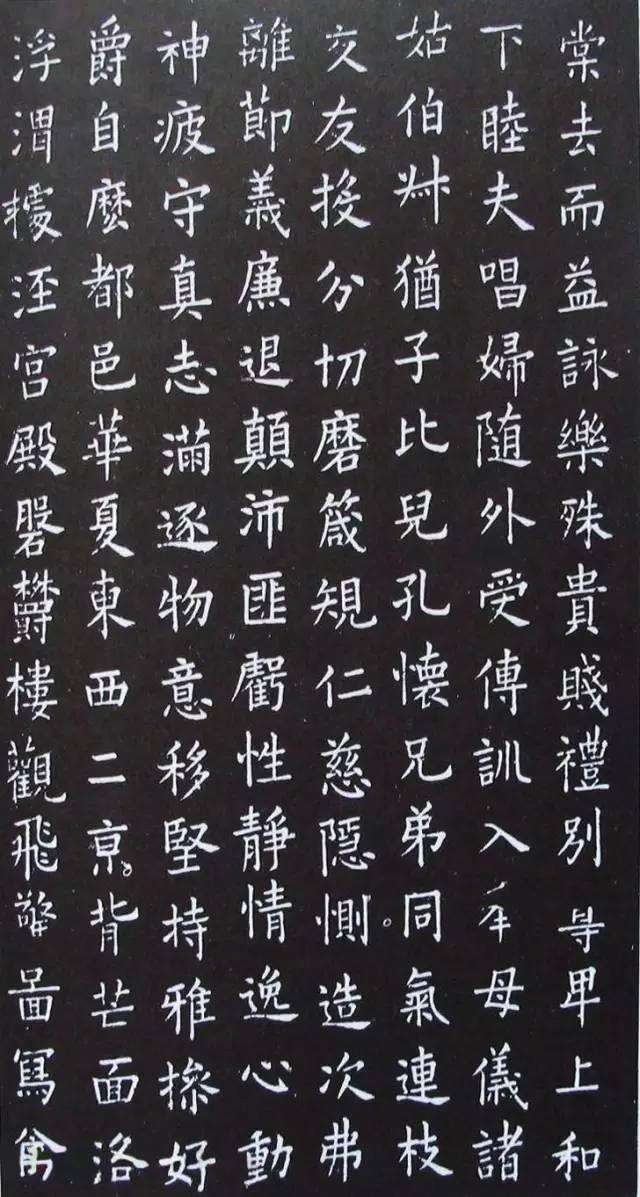 棠去而益詠樂殊貴賤禮別尊卑上和
下睦夫唱婦隨外受傅訓入奉母儀諸
姑伯叔猶子比兒孔懷兄弟同氣連枝
交友投分切磨箴規仁慈隱惻造次弗
離節義廉退顛沛匪虧性靜情逸心動
神疲守真志滿逐物意移堅持雅操好
爵自麼都邑華夏東西二京背芒面洛
浮渭據涇宮殿磐鬱樓觀飛驚啚寫禽